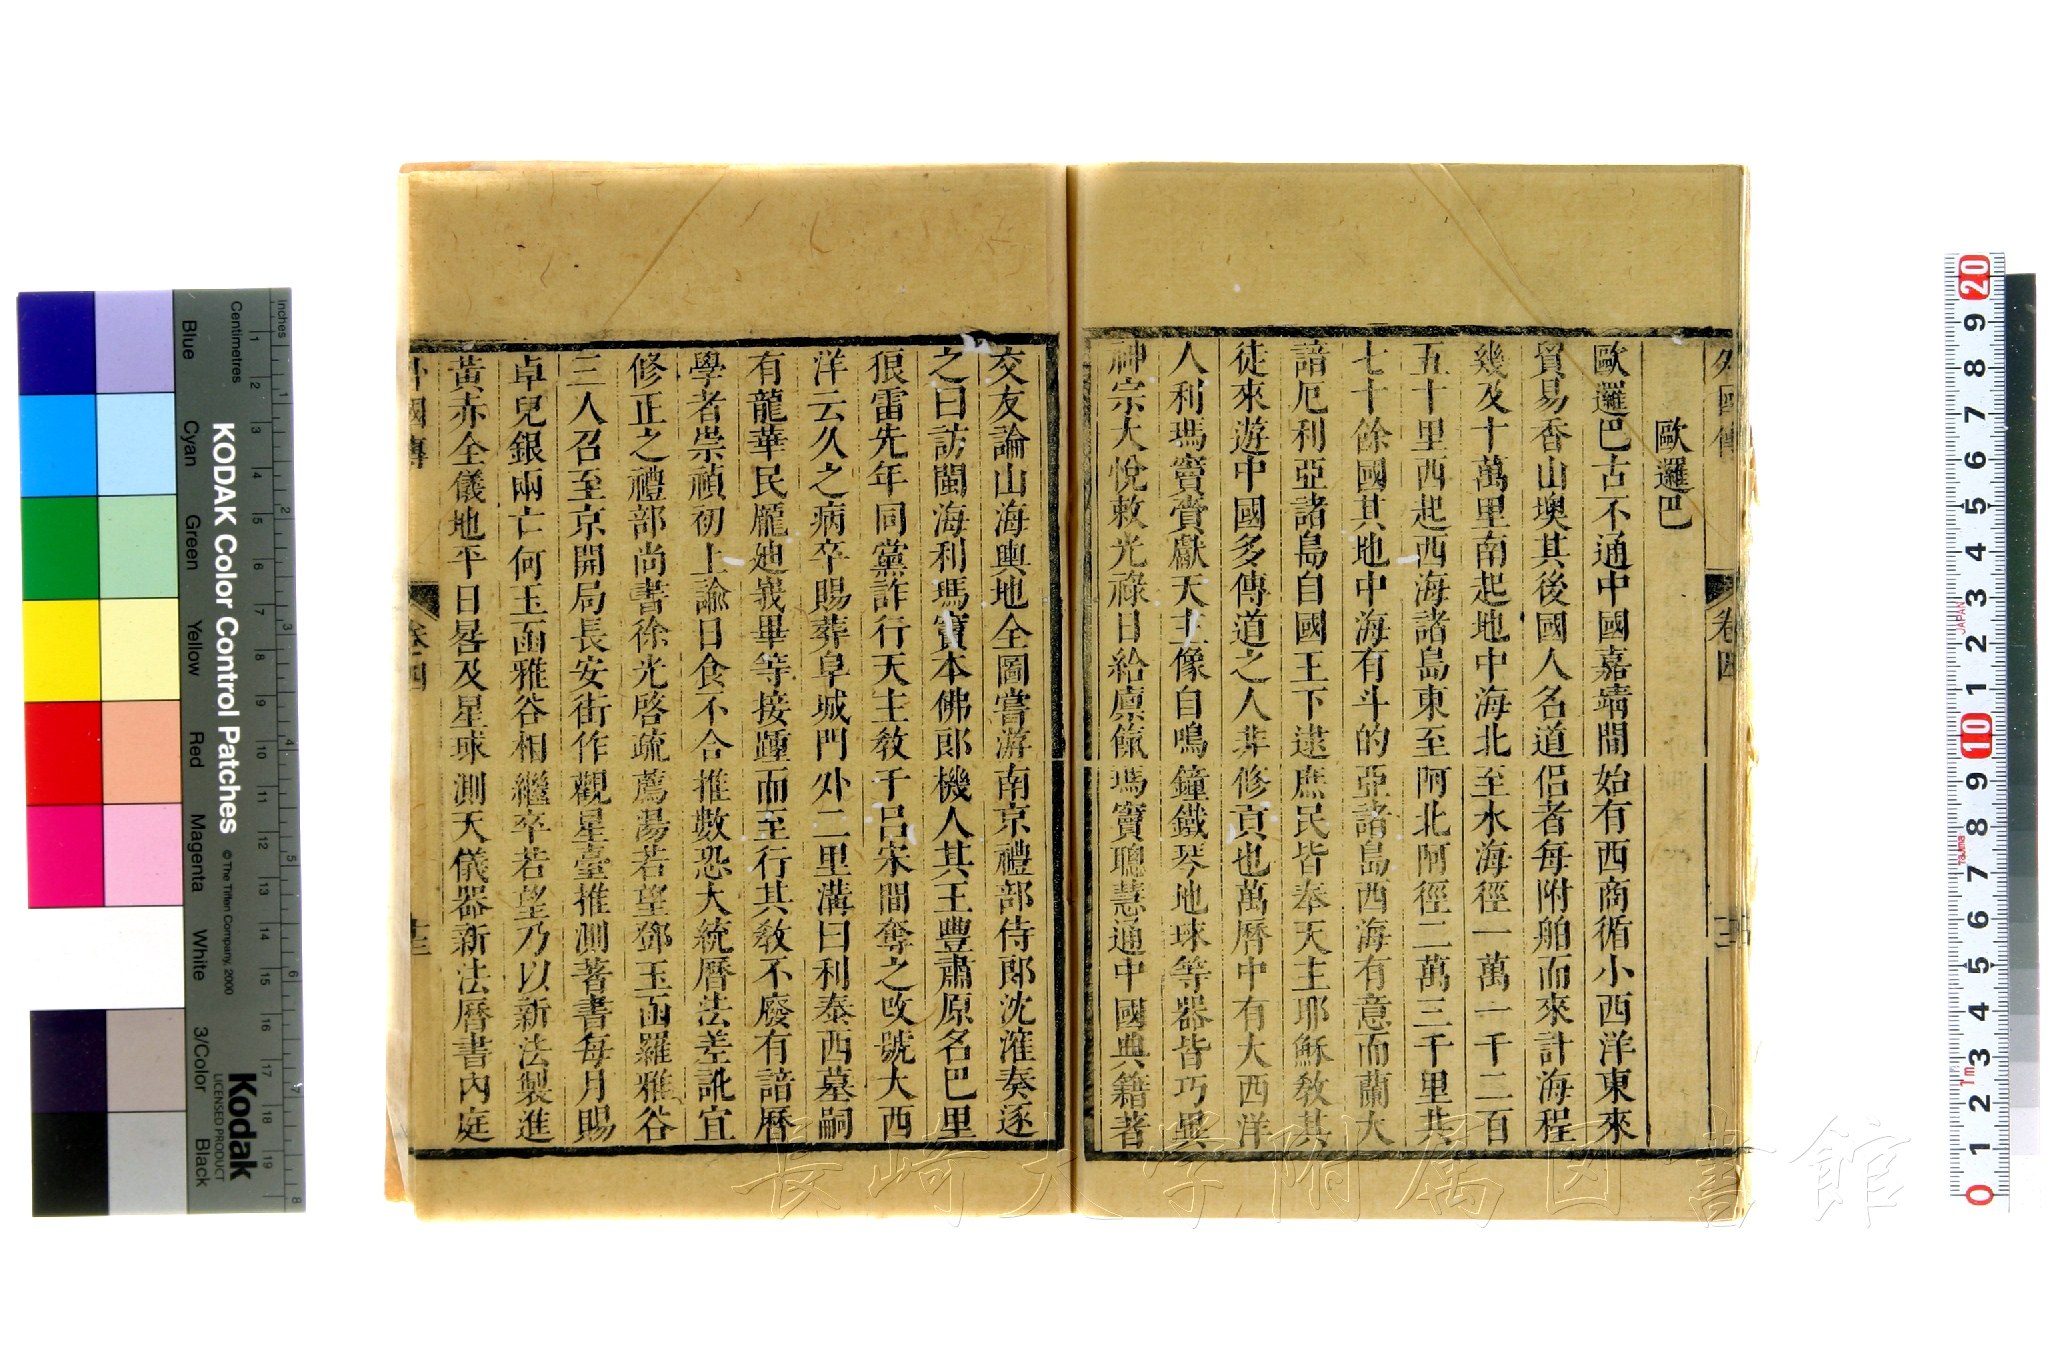 外國傳
卷四
歐邏巴
歐邏巴古不通中國嘉靖間始有西商循小西洋東來
貿易香山墺其後國人名道侶者每附舶而來計海程
幾及十萬里南起地中海北至氷海徑一萬一千二百
五十里西起西海諸島東至阿北阿徑二萬三千里共
七十餘國其地中海有斗的亞諸島西海有意而蘭大
諳厄利亞諸島自國王下逮庶民皆奉天主耶穌教其
徒來遊中國多傳道之人非修貢也萬曆中有大西洋
人利瑪竇賫獻天主像自鳴鐘鐵琴地球等器皆巧異
神宗大悅敕光祿日給廩餼瑪竇聰慧通中國典籍著
交友論山海輿地全圖嘗游南京禮部侍郎沈㴶奏逐
之曰訪閩海利瑪竇本佛郎機人其王豐肅原名巴里
狼雷先年同黨詐行天主敎于呂宋間奪之攺號大西
洋云久之病卒賜葬阜城門外二里溝曰利泰西墓嗣
有龍華民龐廸峩畢等接踵而至行其敎不廢有諳曆
學者崇禎初上諭日食不合推數恐大統曆法差訛宜
修正之禮部尚書徐光啓疏薦湯若望鄧玉函羅雅谷
三人召至京開局長安街作觀星臺推測著書每月賜
卓兒銀兩亡何玉函雅谷相繼卒若望乃以新法製進
黃赤全儀地平日晷及星球測天儀器新法曆書內庭
外國傳
卷四
十三
KODAK Color Control Patches
© The Tiffen Company, 2000
Kodak
LICENSED PRODUCT
Inches
Centimetres
Blue
Cyan
Green
Yellow
Red
Magenta
White
3/Color
Black
JAPAN
Tajima
1m
長崎大学附属図書館